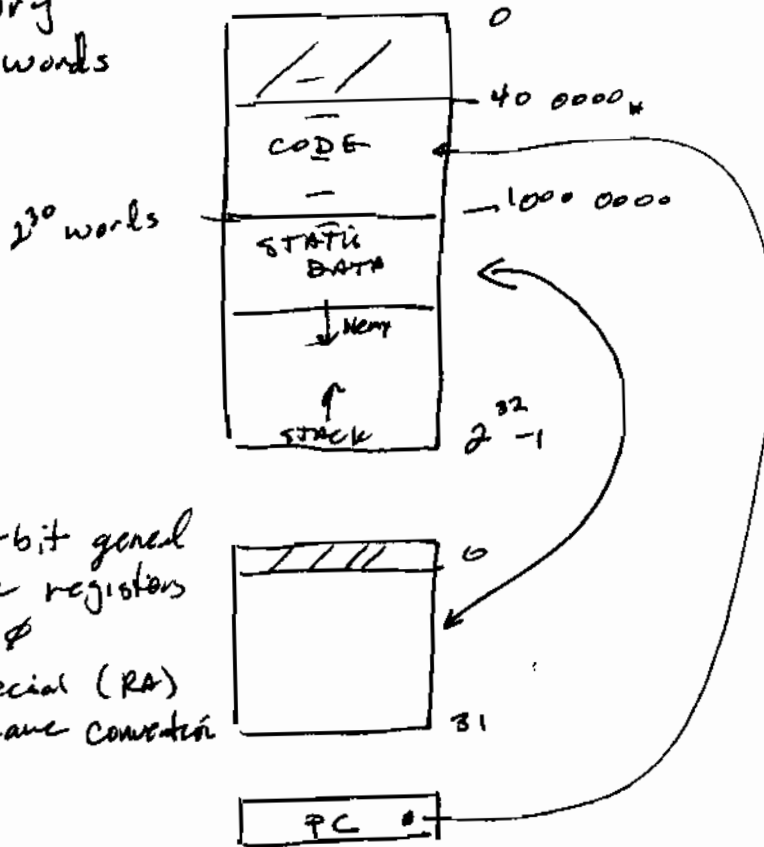 words
0
40 0000H
CODE
1000 0000
2^30 words
STATIC
DATA
Heap
STACK
2^32-1
-bit general
registers
0
∅
ecial (RA)
ave convention
31
PC